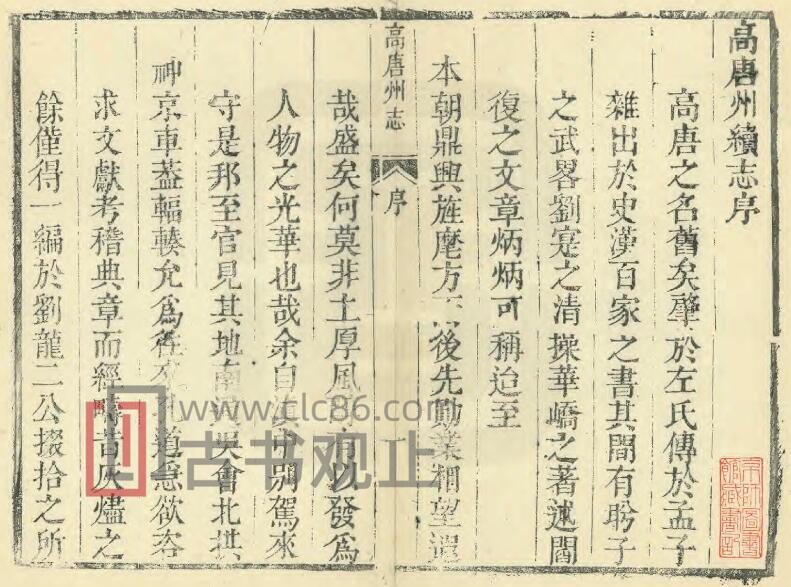 高唐州續志序
高唐之名舊矣肇於左氏傳於孟子
雜出於史漢百家之書其間有聆子
之武畧劉寔之清操華嶠之著述閻
復之文章炳炳可稱迨至
本朝鼎興旌麾方 後先勳業相望
高唐州志
序
哉盛矣何莫非土厚風 有以發爲
人物之光華也哉余自 別駕來
守是邦至官見其地南 吳會北拱
神京車蓋輻輳允爲 道急欲咨
求文獻考稽典章而經疇昔灰燼之
餘僅得一編於劉龍二公掇拾之所
www.clc86.com
古书观止